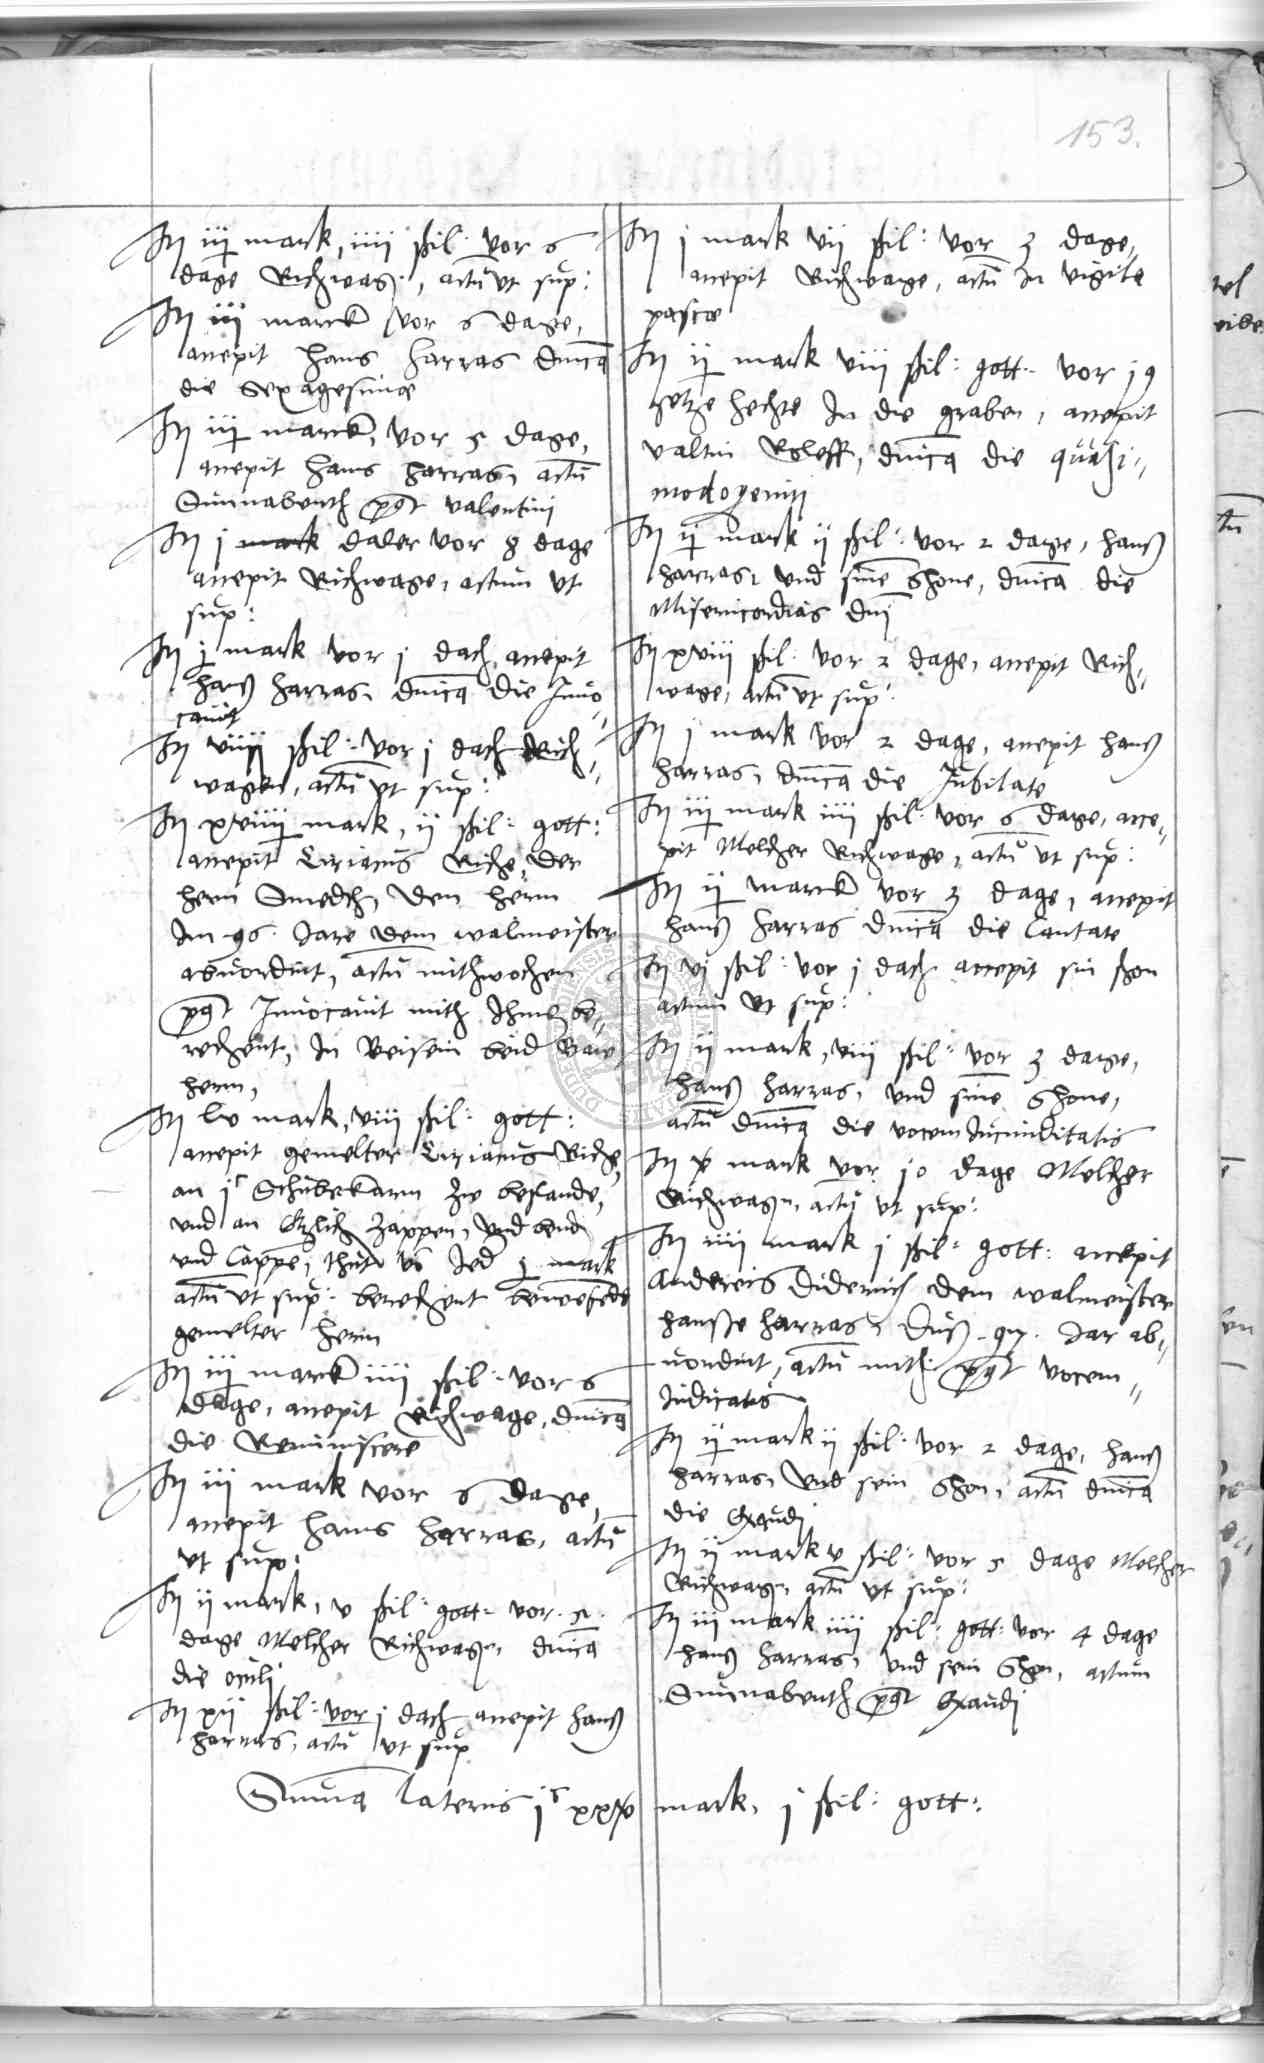 153.
Itᷠ iij mark, iiij ßil: vor 6
dage Richwag:, actū vt sup:
Itᷠ iij marck vor 6 dage,
accepit Hans Harras dnica
die Sexagesimae
Itᷠ iij marck, vor 5 dage,
accepit Hans Harras, actū
Sunnabenth post valentini
Itᷠ j mark daler vor 8 dage
accepit Richwage, actum vt
sup:
Itᷠ j mark vor j dach, accepit
Hanß Harras, dnica die Inuo
cauit
Itᷠ viiij ßil: vor j dach Rich
wagen, actū vt sup:
Itᷠ xviiij mark, ij ßil: gott:
accepit Ciriacus Riche, der
hern Smedth, den hern
Im 96. Jare dem walmeister
abuordint, actū mithwochen
post Inuocauit mith Ihme be
rechent, In Beisein beid Baw
hern,
Itᷠ lv mark, viij ßil: gott:
accepit gemelter Ciriacus Riche,
an jc Schubekarn zw beslande,
vnd an zappen, vnd bend
vnd Cappe, vō Jed j mark
actū vt sup: berechent
gemelter hern
Itᷠ iij marck iiij ßil: vor 6
dage, accepit Richwage, dnica
die Reminiscere
Itᷠ iij mark vor 6 dage,
accepit Hans Harras, actū
vt sup:
Itᷠ ij mark, v ßil: gott: vor 5
dage Melcher Richwag:, dnica
die oculi
Itᷠ xij ßil: vor j dach accepit Hanß
Harras, actū vt sup
Itᷠ j mark vij ßil: vor 3 dage,
accepit Richwage, actū in vigilia
pascae
Itᷠ ij mark viij ßil: gott: vor 19
hechte In die graben, accepit
valtin Roleff, dnica die quasi
modogeniti
Itᷠ ij mark ij ßil: vor 2 dage, Hanß
Harras, vnd sine Shone, dnica die
Misericordias dni
Itᷠ xviij ßil: vor 2 dage, accepit Rich
wage, actū vt sup:
Itᷠ j mark vor 2 dage, accepit Hanß
Harras, dnica die Jubilate
Itᷠ iij mark iiij ßil: vor 6 dage, acce
pit Melcher Richwage, actū vt sup:
Itᷠ ij marck vor 3 dage, accepit
Hanß Harras dnica die Cantate
Itᷠ vj ßil: vor j dach accepit sin shon
actum vt sup:
Itᷠ ij mark, viij ßil: vor 3 dage,
Hanß Harras, vnd sine Shone,
actū dnica die vocem Jucunditatis
Itᷠ v mark vor 10 dage Melcher
Richwag:, actū vt sup:
Itᷠ iiij mark j ßil: gott: accepit
Andereis Diderich dem walmeister
Hanße Harras, Duß 97. Jar ab
uordint, actū mith: post vocem
Judicatis
Itᷠ ij mark ij ßil: vor 2 dage, Hanß
Harras, vnd sein Shon, actū dnica
die Exaudi
Itᷠ ij mark v ßil: vor 5 dage Melcher
Richwag:, actū vt sup:
Itᷠ iij mark iiij ßil: gott: vor 4 dage
Hanß Harras, vnd sein Shon, actum
Sunnabenth post Exaudi
Suma lateris jc xxxv mark, j ßil: gott: